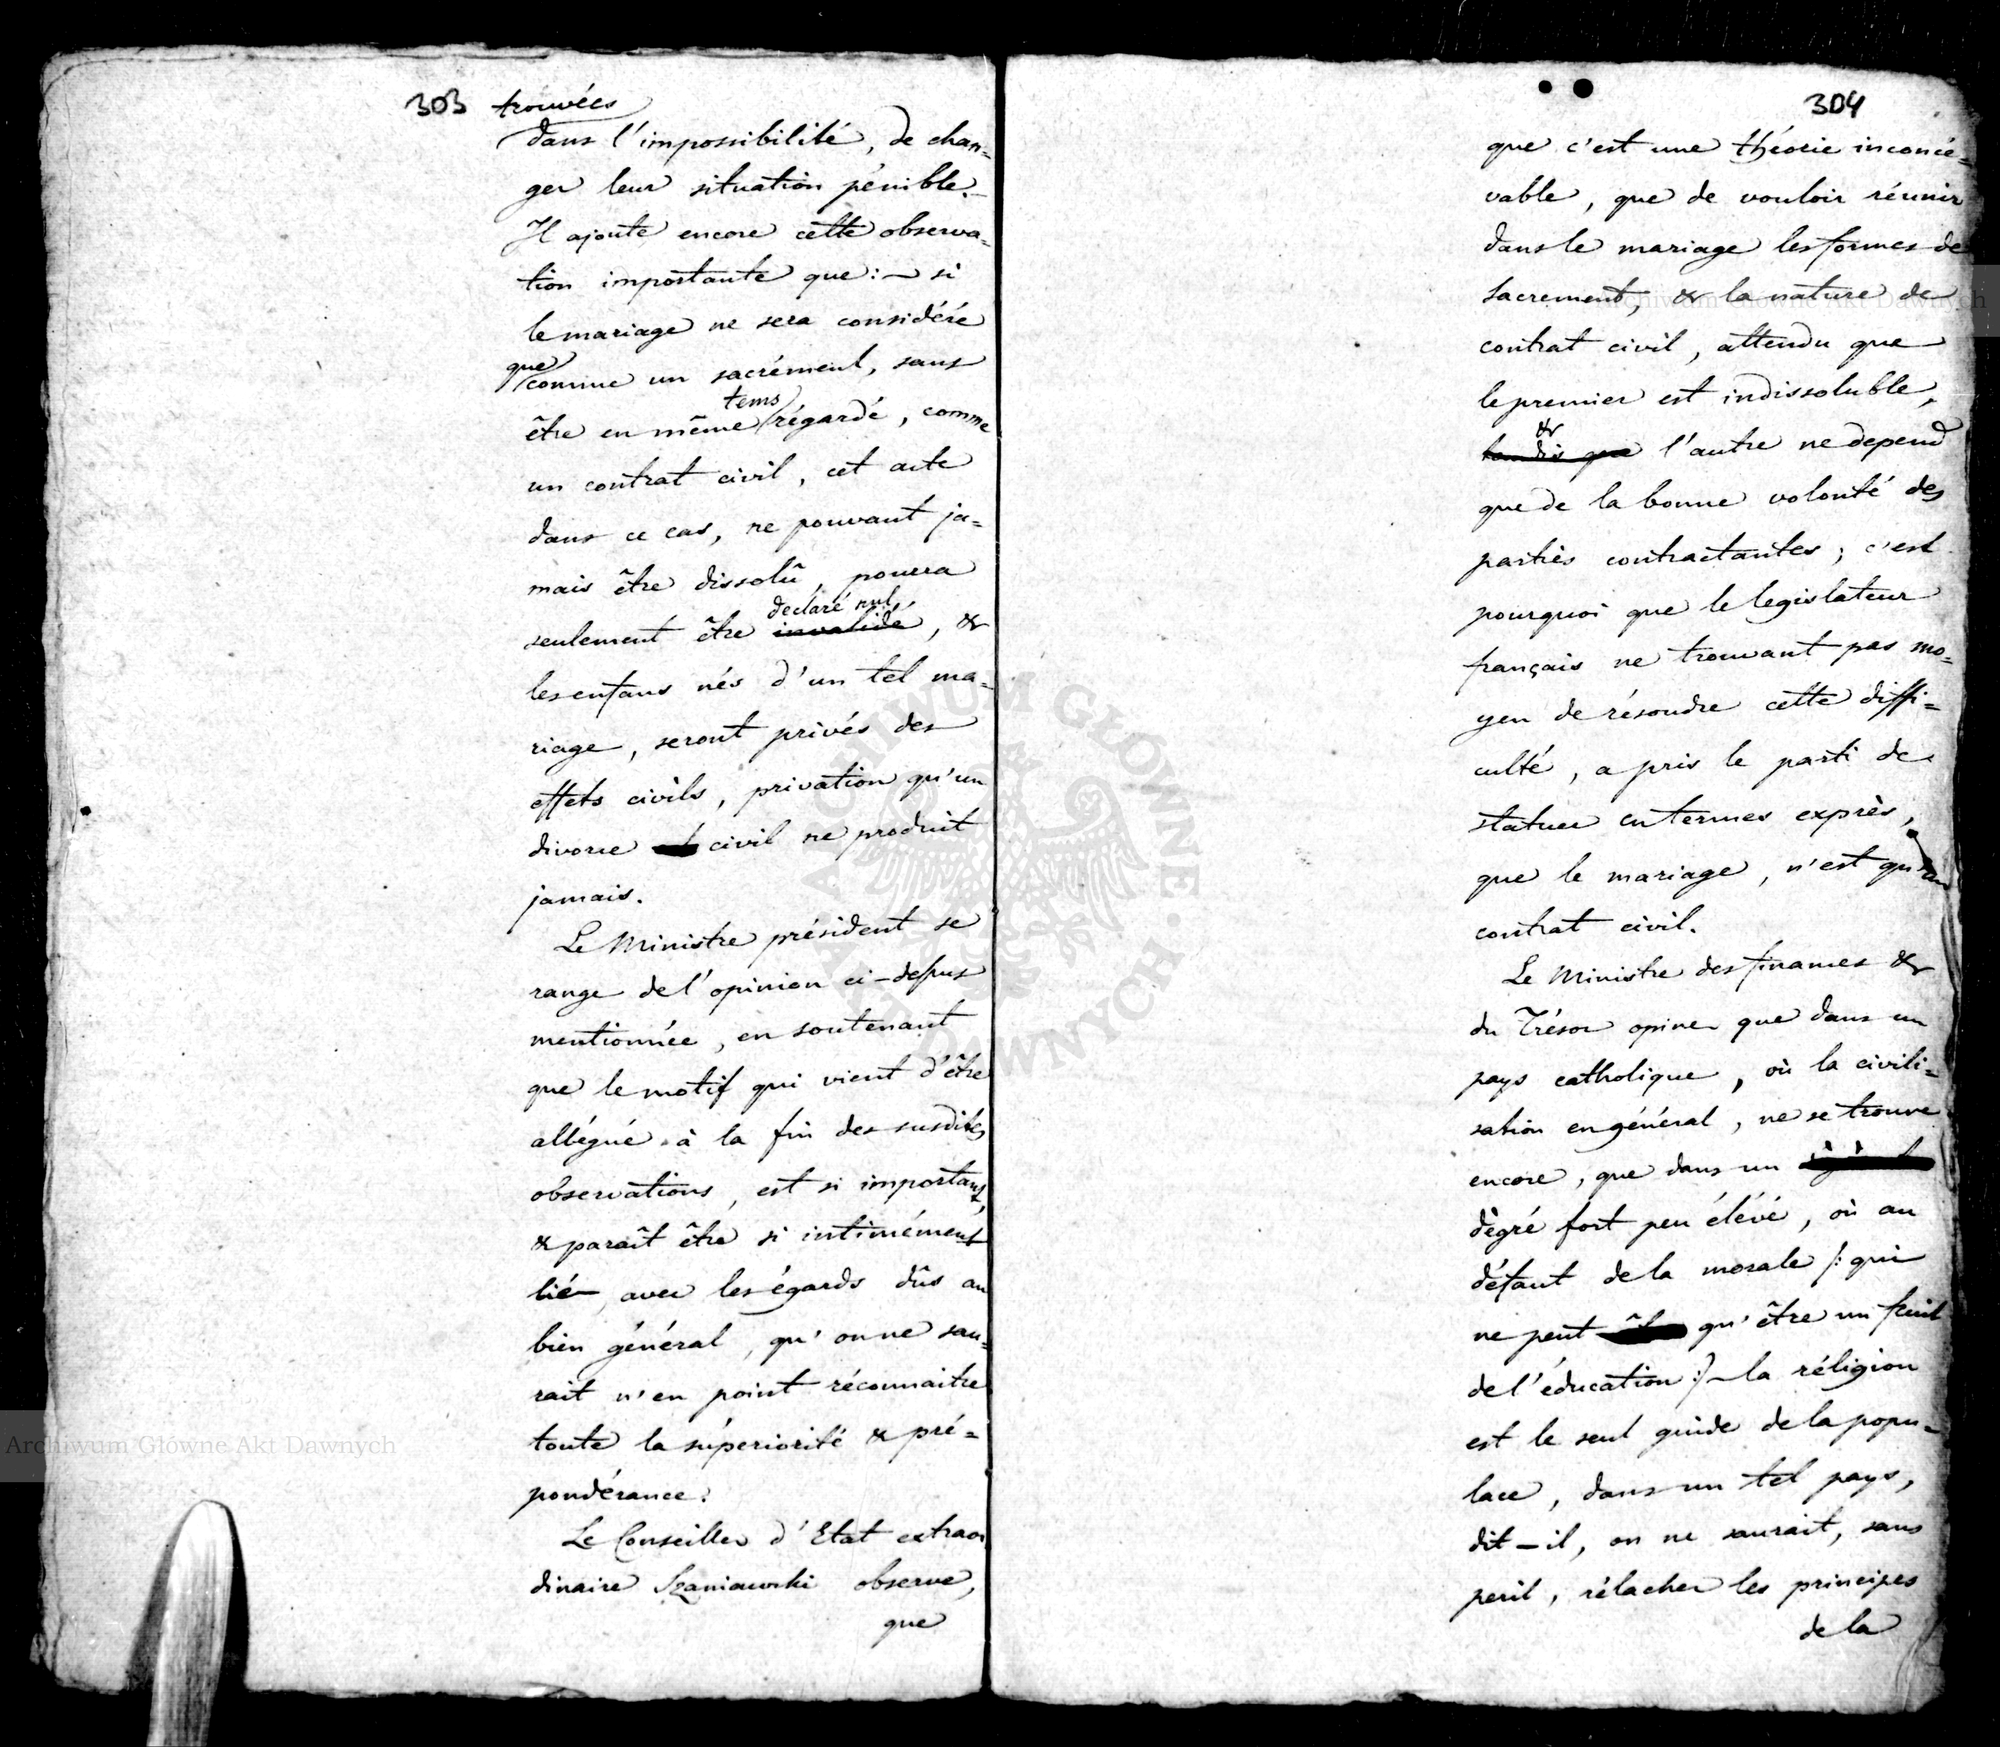 303 trouvées
dans l'impossibilité, de chan=
ger leur situation pénible.
Il ajoute encore cette observa=
tion importante que: — si
le mariage ne sera considéré
que comme un sacrément, sans
être en même tems régardé, comme
un contrat civil, cet acte
dans ce cas, ne pouvant ja=
mais être dissolû, pouvra
seulement être invalidé declaré nul, &
les enfans nés d'un tel ma=
riage, seront privés des
effets civils, privation qu'un
divorce civil ne produit
jamais.
Le Ministre président se
range de l'opinion ci-dessus
mentionnée, en soutenant
que le motif qui vient d'être
allégué à la fin des susdites
observations, est si important,
& paraît être si intimément
lié avec les égards dûs au
bien général, qu'on ne sau=
rait n'en point réconnaitre
toute la supériorité & pré=
pondérance.
Le Conseiller d'Etat extraor
dinaire Szaniawski observe,
que
304
que c'est une théorie inconcé=
vable, que de vouloir réunir
dans le mariage les formes de
sacrement, & la nature de
contrat civil, attendu que
le premier est indissoluble,
tandis que & l'autre ne depend
que de la bonne volonté des
partiès contractantes; c'est
pourquoi que le legislateur
français ne trouvant pas mo=
yen de résoudre cette diffi=
culté, a pris le parti de
statuer en termes exprès,
que le mariage, n'est qu'un
contrat civil.
Le Ministre des finances &
du Trésor opine que dans un
pays catholique, où la civili=
sation en général, ne se trouve
encore, que dans un
dègré fort peu élévé, où au
défaut de la morale /: qui
ne peut qu'être un fruit
de l'éducation :/ — la réligion
est le seul guide de la popu=
lace, dans un tel pays,
dit-il, on ne saurait, sans
peril, rélacher les principes
de la
Archiwum Główne Akt Dawnych
Archiwum Główne Akt Dawnych
ARCHIWUM GŁÓWNE AKT DAWNYCH